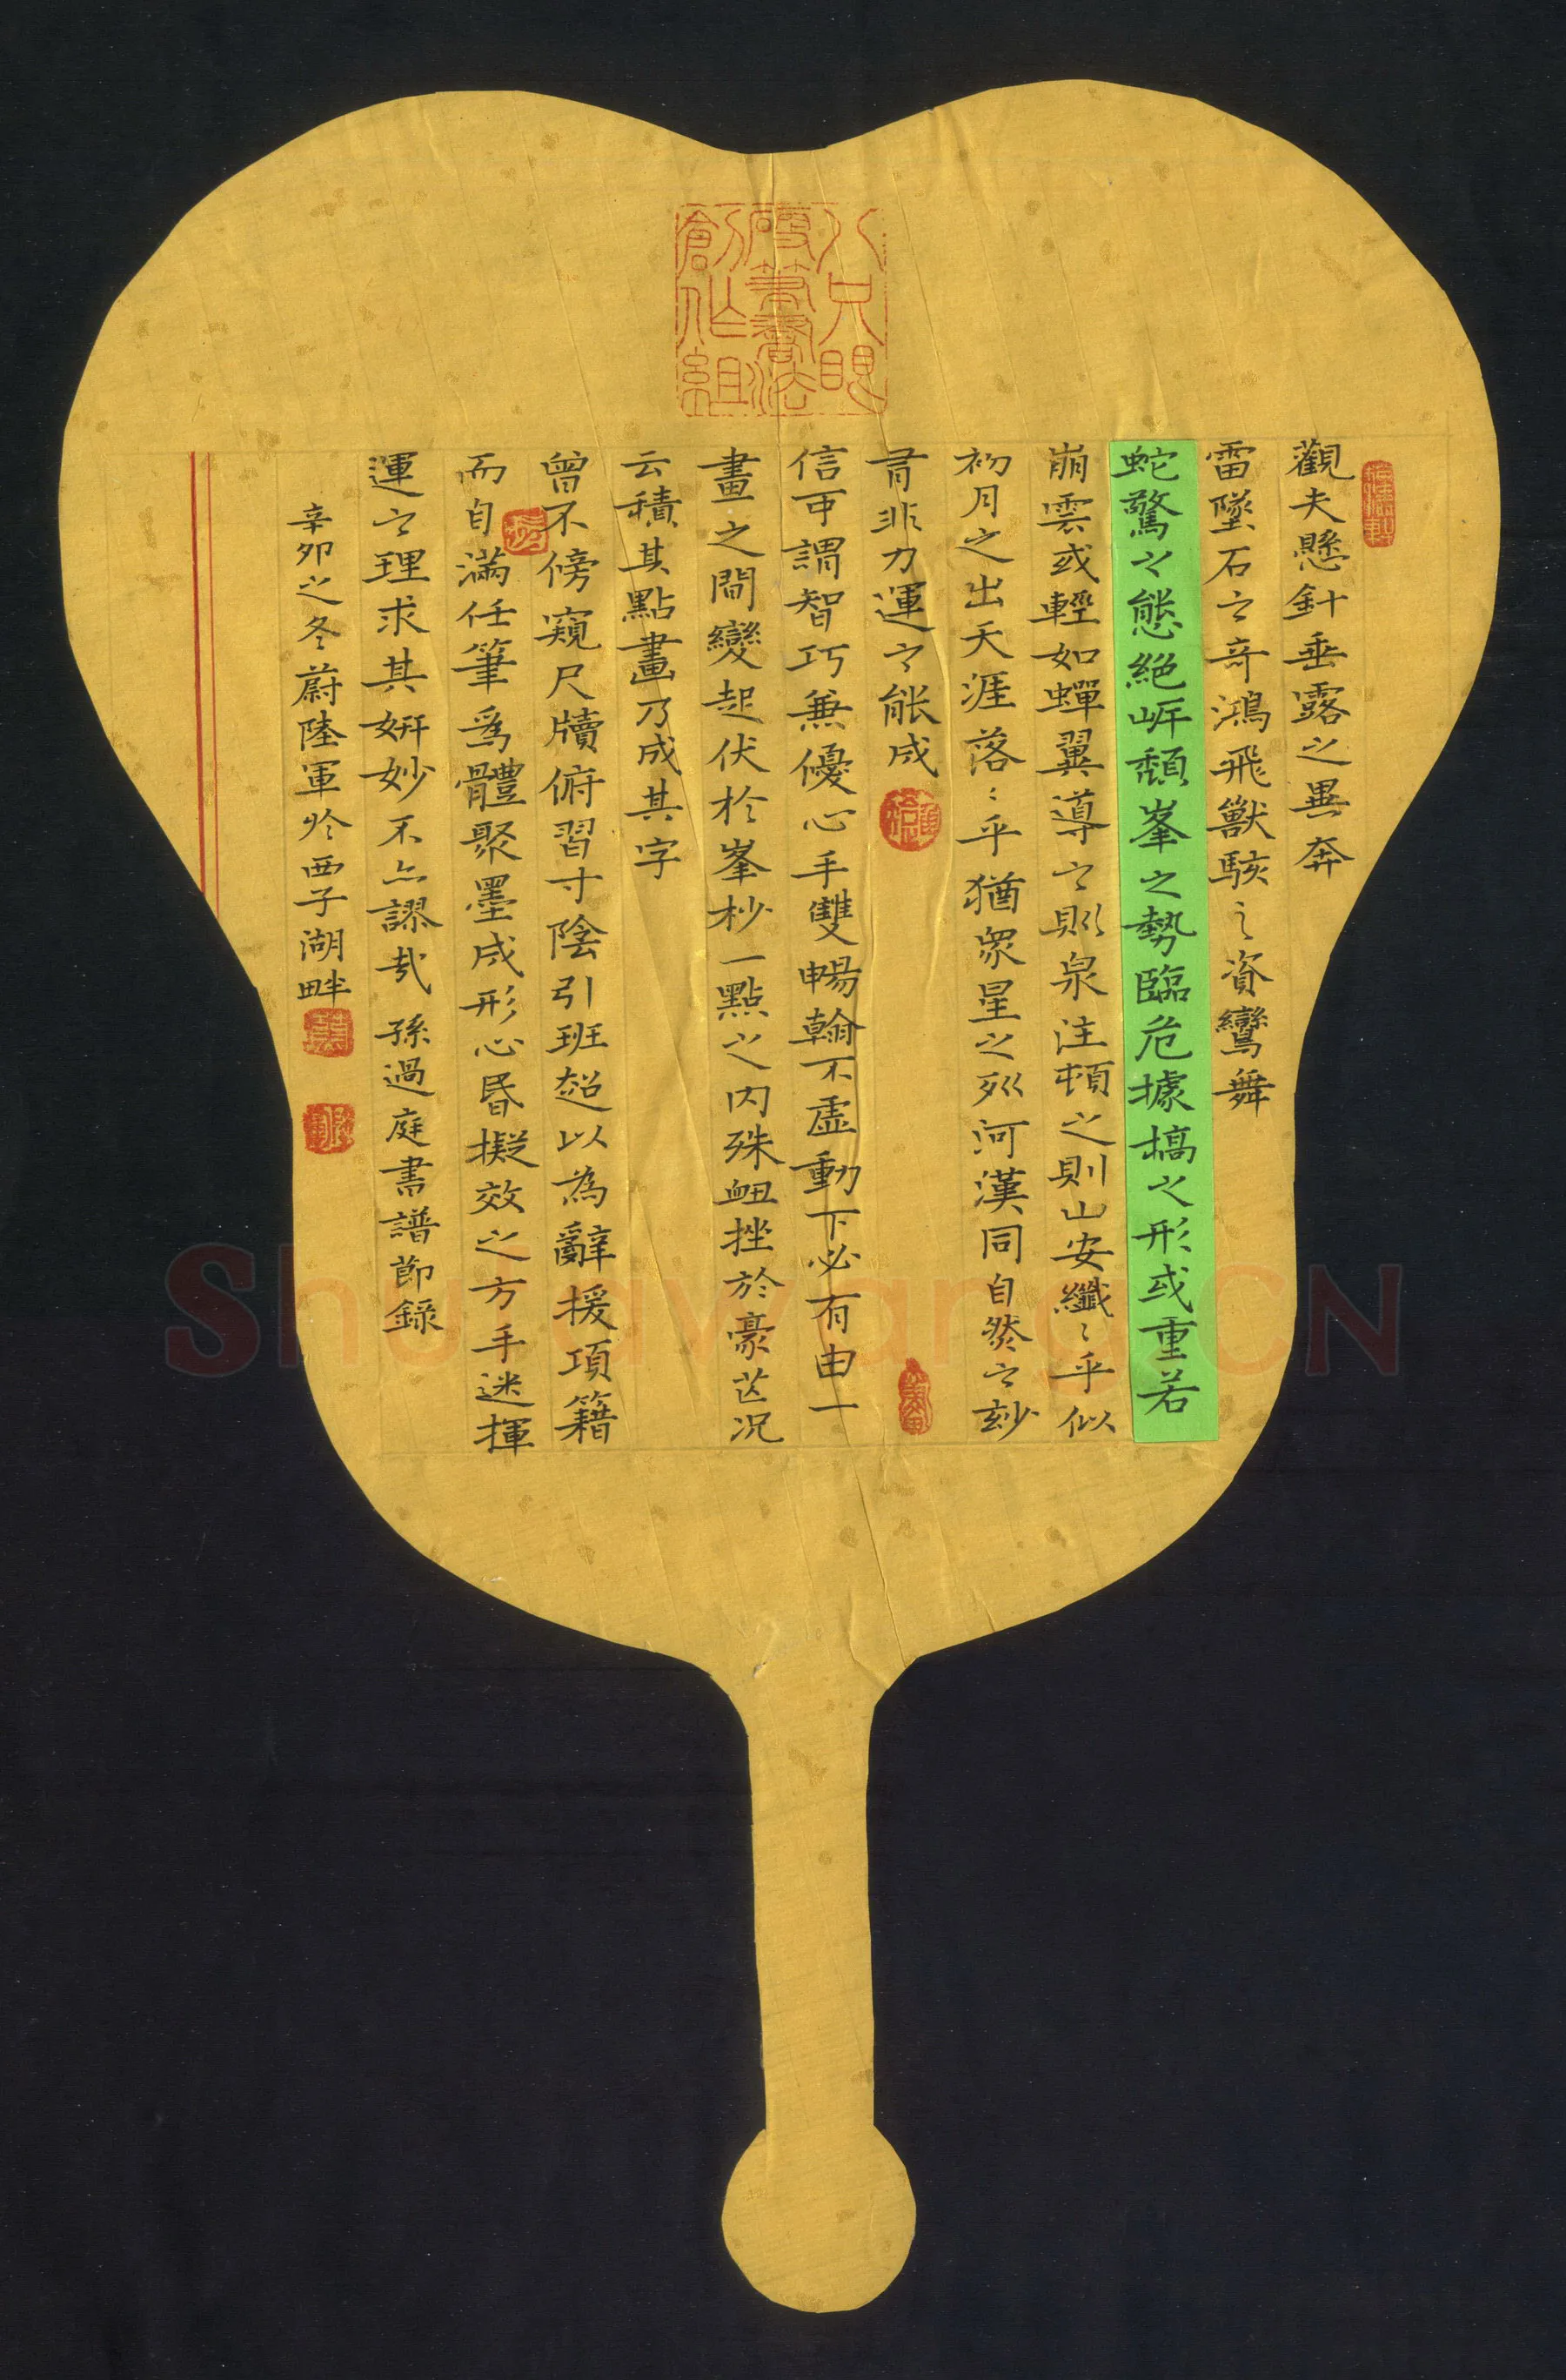 觀夫懸針垂露之異奔
雷墜石之奇鴻飛獸駭之資鸞舞
蛇驚之態絕岸頹峯之勢臨危據槁之形或重若
崩雲或輕如蟬翼導之則泉注頓之則山安纖〻乎似
初月之出天涯落〻乎猶衆星之列河漢同自然之妙
有非力運之能成
信可謂智巧兼優心手雙暢翰不虛動下必有由一
畫之間變起伏於峯杪一點之内殊衄挫於豪芒况
云積其點畫乃成其字
曾不傍窺尺牘俯習寸陰引班超以為辭援項籍
而自滿任筆爲體聚墨成形心昏擬效之方手迷揮
運之理求其妍妙不亦謬哉 孫過庭書譜節錄
辛卯之冬蔚陸軍於西子湖畔
八只眼
硬筆書法
創作組
Shufawang.CN